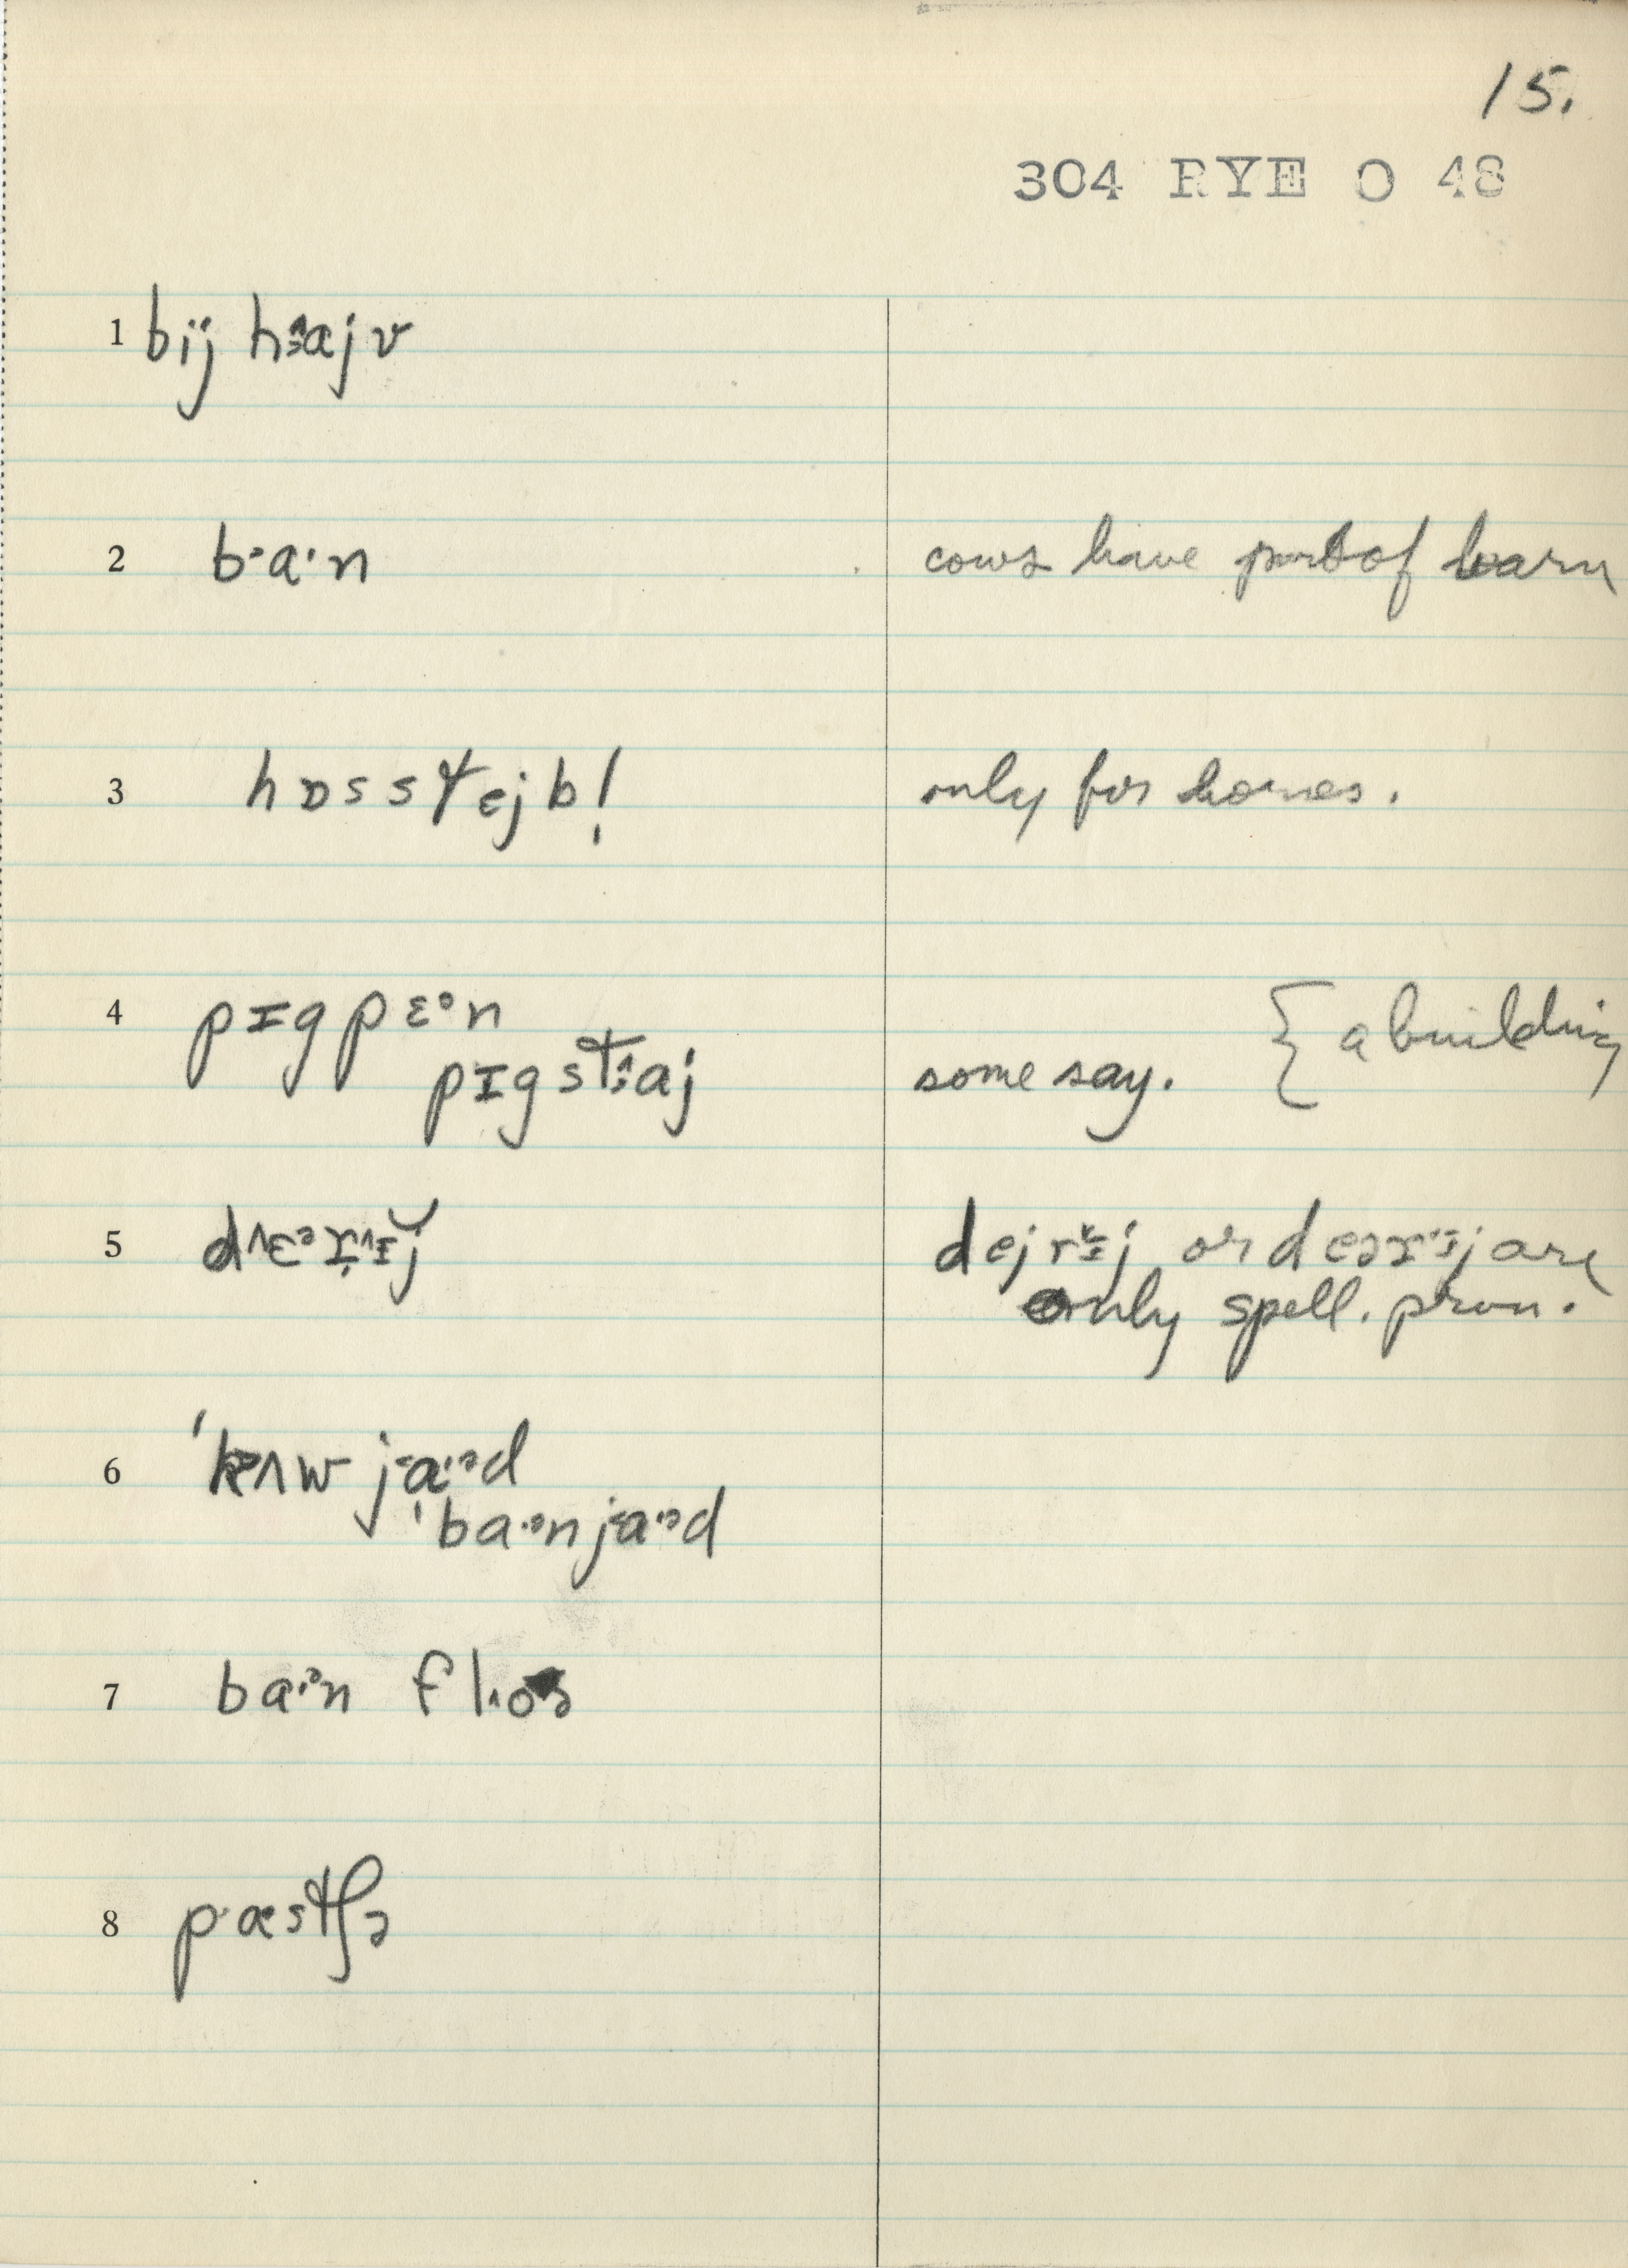 15.
304 RYE O 48
1 bïj hɜ̂ajv
2 b·a·n cows have part of barn
3 hɒsstejb! only for horses.
4 pɪgpɛᵊn
pɪgstɜ̂aj some say. { a building
5 dejrɪj or deəɪj are
only spell. pron.
6 'kʌw ja·ᵊd
'ba·ᵊnja·ᵊd
7 ba·ᵊn floə
8 p·æstʃə